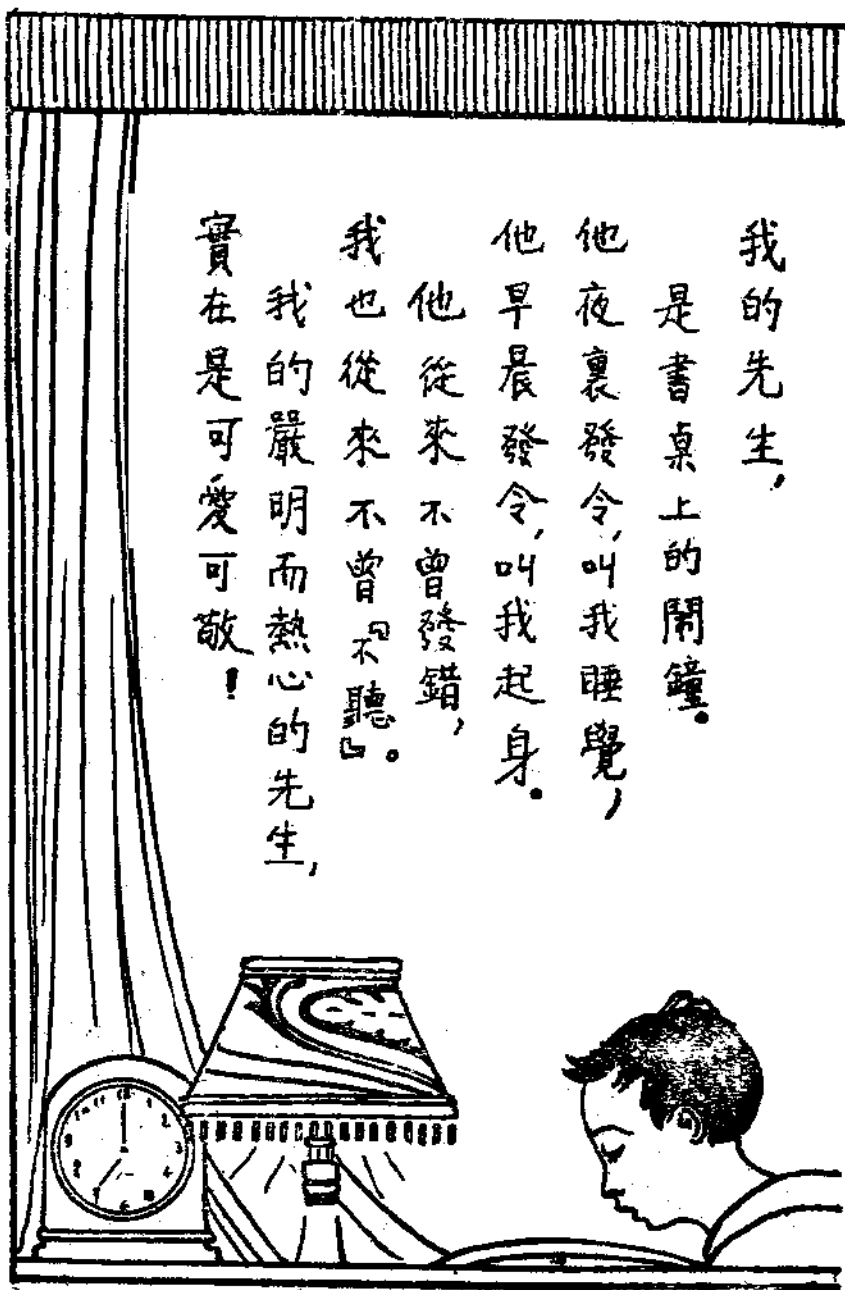 我的先生，
是書桌上的鬧鐘。
他夜裏發令，叫我睡覺，
他早晨發令，叫我起身。
他從來不曾發錯，
我也從來不曾『不聽』。
我的嚴明而熱心的先生，
實在是可愛可敬！